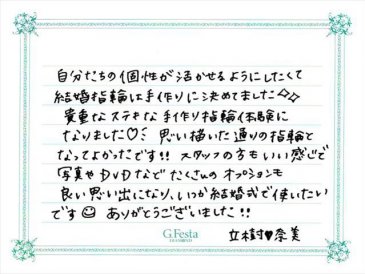 自分たちの個性が活かせるようにしたくて
結婚指輪は手作りに決めてました✧✧
貴重なステキな手作り指輪体験に
なりました♡ 思い描いた通りの指輪と
なってよかったです!! スタッフの方もいい感じで
写真やDVDなどたくさんのオプションも
良い思い出になり、いつか結婚式で使いたい
です☺ ありがとうございました!!
G.Festa
立樹♥奈美